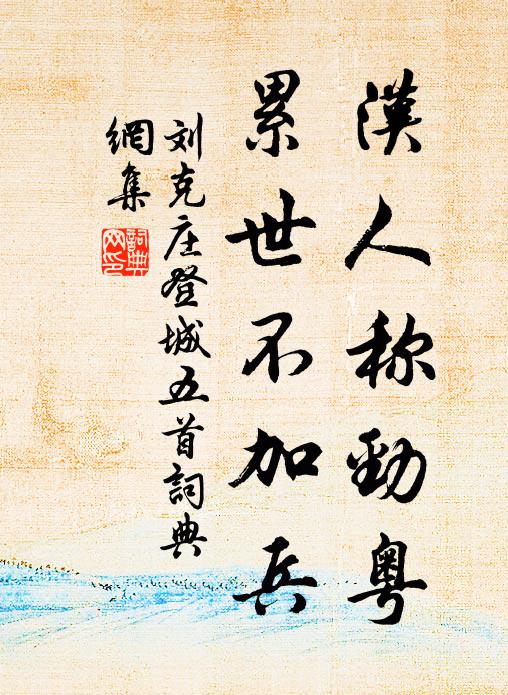 漢人称勁粤
累世不加兵
刘克庄登城五首詞典
網集
詞典
网印